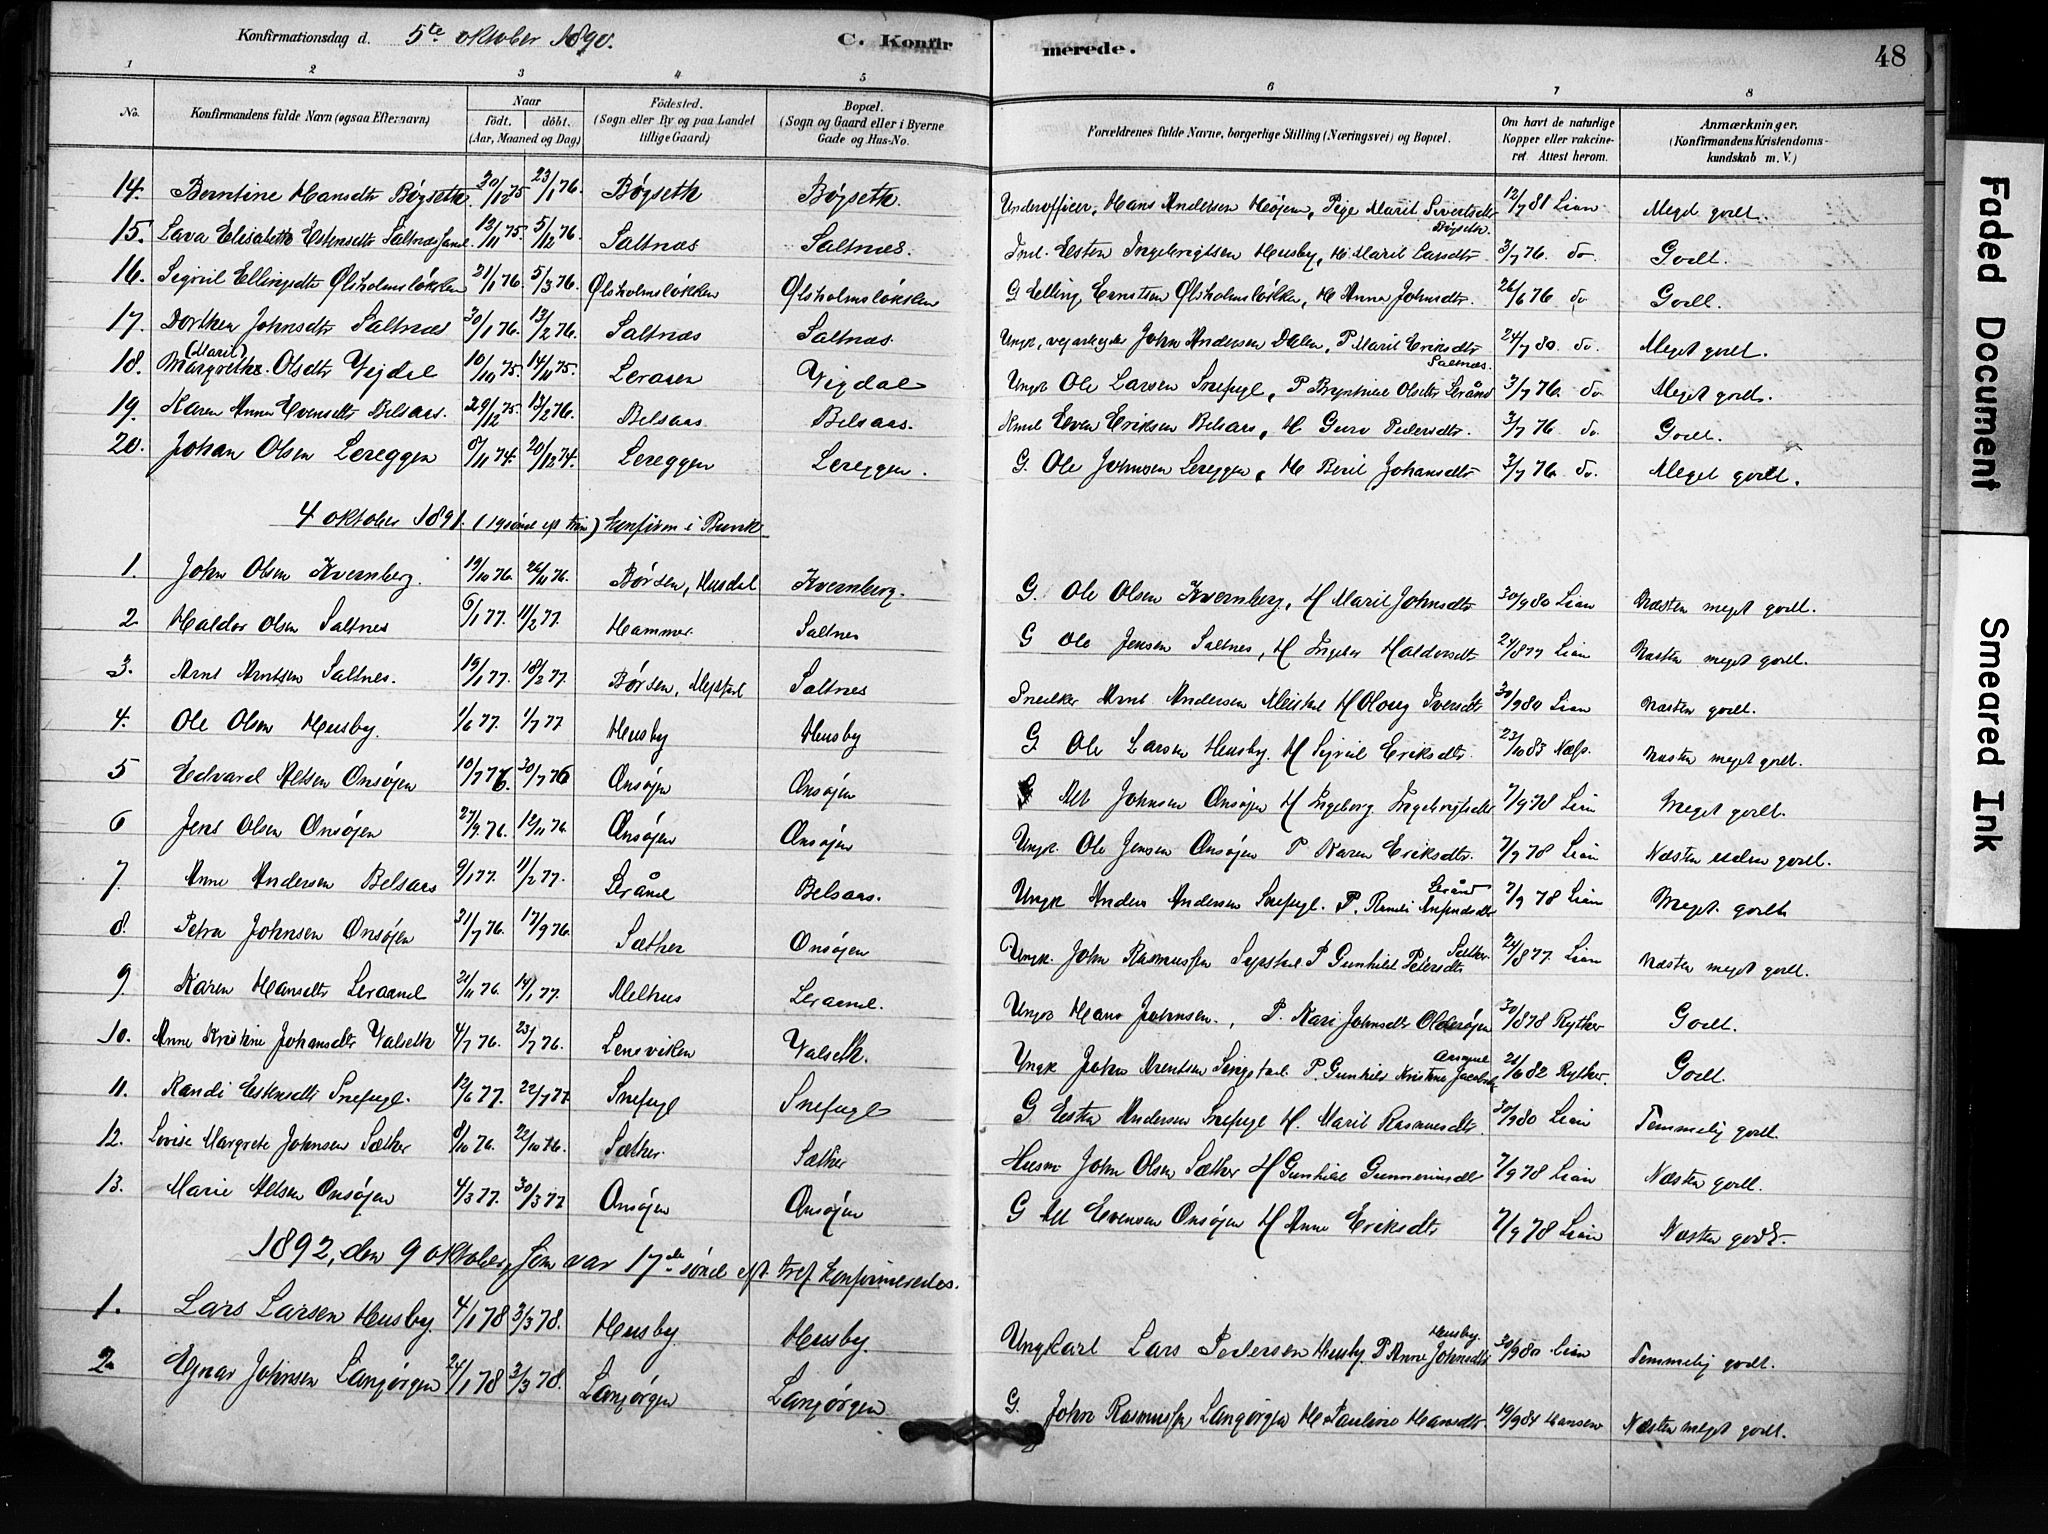 Konfirmationsdag d. 5te oktober 1890. C. Konfirmerede. 48
1 2 3 4 5 6 7 8
No. Konfirmandens fulde Navn (ogsaa Efternavn) Naar født. døbt. (Aar, Maaned og Dag) Fødested. (Sogn eller By og paa Landet tillige Gaard) Bopæl. (Sogn og Gaard eller i Byerne Gade og Hus-No. Forældrenes fulde Navne, borgerlige Stilling (Næringsvei) og Bopæl. Om havt de naturlige Kopper eller vakcineret. Attest herom. Anmærkninger. (Konfirmandens Kristendomskundskab m. V.)
14. Berntine Hansdtr Bøgseth 20/12 75 23/1 76. Bøgseth Bøgseth Underofficer, Hans Andersen Højem, Pige Marit Sivertsdtr Bøgseth 12/7 81 Lian Meget godt.
15. Lava Elisabeth Estensdtr Saltnæs 12/11 75. 5/12 76. Saltnæs Saltnæs. Esten Ingebrigtsen Husby, H. Marit Larsdtr 3/7 76. do Godt.
16. Sigrid Ellingsdtr Ølsholmsløkken 21/1 76. 5/3 76. Ølsholmsløkken Ølsholmsløkken G Elling Erntsen Ølsholmsløkken, H Anne Johnsdtr. 26/6 76 do Godt.
17. Dorthea Johnsdtr Saltnæs 30/1 76. 13/2 76. Saltnæs Saltnæs. Ungk, vejarbejder John Andersen Dalen, P Marit Eriksdtr Saltnæs. 24/7 80. do. Meget godt.
18. Margrethe (Marit) Olsdtr Vigdal 10/10 75. 14/11 75. Leraen Vigdal Ungk Ole Larsen Snefugl, P Olsdtr Lerånd 3/7 76. do Meget godt.
19. Karen Anna Evensdtr Belsaas. 29/12 75. 13/2 76. Belsaas. Belsaas. Even Eriksen Belsaas, H Guro Pedersdtr. 3/7 76 do. Godt.
20. Johan Olsen Lereggen 8/11 74. 20/12 74. Lereggen Lereggen. G. Ole Johnsen Lereggen, H Berit Johansdtr 3/7 76. do. Meget godt.
4 oktober 1891. (19 sønd eft trin) konfirm i Buvik
1. John Olsen Kvernberg. 19/10 76. 26/11 76. Børsen, Husdal Kvernberg. G. Ole Olsen Kvernberg, H Marit Johnsdtr 30/9 80 Lian Næsten meget godt.
2. Haldor Olsen Saltnes 6/1 77. 11/2 77. Hammer. Saltnes G Ole Jensen Saltnes, H Ingeb Haldorsdtr 24/8 77 Lian Næsten meget godt.
3. Arnt Arntsen Saltnes. 19/1 77. 18/2 77. Børsen, Saltnes Snedker Arnt Andersen H Olong Iversdtr 30/9 80 Lian Næsten godt.
4. Ole Olsen Husby. 1/6 77. 1/7 77 Husby Husby G. Ole Larsen Husby. H Sigrid Eriksdtr. 23/10 83 Næss. Næsten meget godt.
5 Edvard Altsen Onsøjen 10/7 76. 30/7 76 Onsøjen Onsøjen G Alt Johnsen Onsøjen H Ingeborg Ingebrigtsdtr 7/9 78 Lian Meget godt.
6 Jens Olsen Onsøjen 27/9 76. 12/11 76. Onsøjen Onsøjen Ungk. Ole Jensen Onsøjen P Karen Eriksdtr. 7/9 78 Lian Næsten godt.
7. Anne Andersen Belsaas 9/1 77. 11/2 77. Lerånd Belsaas. Ungk Anders Andersen Snefugl. P. Randi Lerånd 7/9 78 Lian Meget godt
8. Petra Johnsen Onsøjen 31/7 76. 17/9 76. Sæther Onsøjen Ungk. John Rasmussen P Gunhild Pedersdtr Sæther. 24/8 77 Lian Næsten meget godt.
9 Karen Hansdtr Leraand 21/11 76. 14/1 77. Melhus Leraand. Ungk Hans Johnsen., P. Kari Johnsdtr Oldersøjen 30/8 78 Ryther Godt.
10. Anne Kristine Johansdtr Valseth 4/7 76. 23/7 76. Lensviken Valseth. Ungk John Arentsen Singstad P. Gunhild Kristine 26/6 82 Ryther. Godt.
11. Randi Estensdtr Snefugl. 12/6 77. 22/7 77. Snefugl Snefugl G Esten Andersen Snefugl H. Marit Rasmusdtr. 30/9 80 Lian Temmelig godt.
12. Lovise Margrete Johnsen Sæther 8/10 76. 22/10 76. Sæther. Sæther Husm John Olsen Sæther H Gunhild 7/9 78 Lian Næsten godt.
13. Marie Altsen Onsøjen 4/3 77. 30/3 77 Onsøjen Onsøjen G Alt Evensen Onsøjen H Anne Eriksdtr 7/9 78 Lian Næsten godt.
1892, den 9 oktober, som var 17de sønd eft tref konfirmeredes.
1. Lars Larsen Husby. 4/1 78 3/3 78. Husby. Husby. Ungkarl Lars Pedersen Husby. P Anne Johnsdtr Husby. 30/9 80 Lian Temmelig godt.
2. Egnar Johnsen Langørgen 24/1 78 3/3 78. Langørgen Langørgen G. John Rasmussen Langørgen H Pauline Hansdtr. 19/9 84 Hansen Næsten meget godt.
Faded Document
Smeared Ink